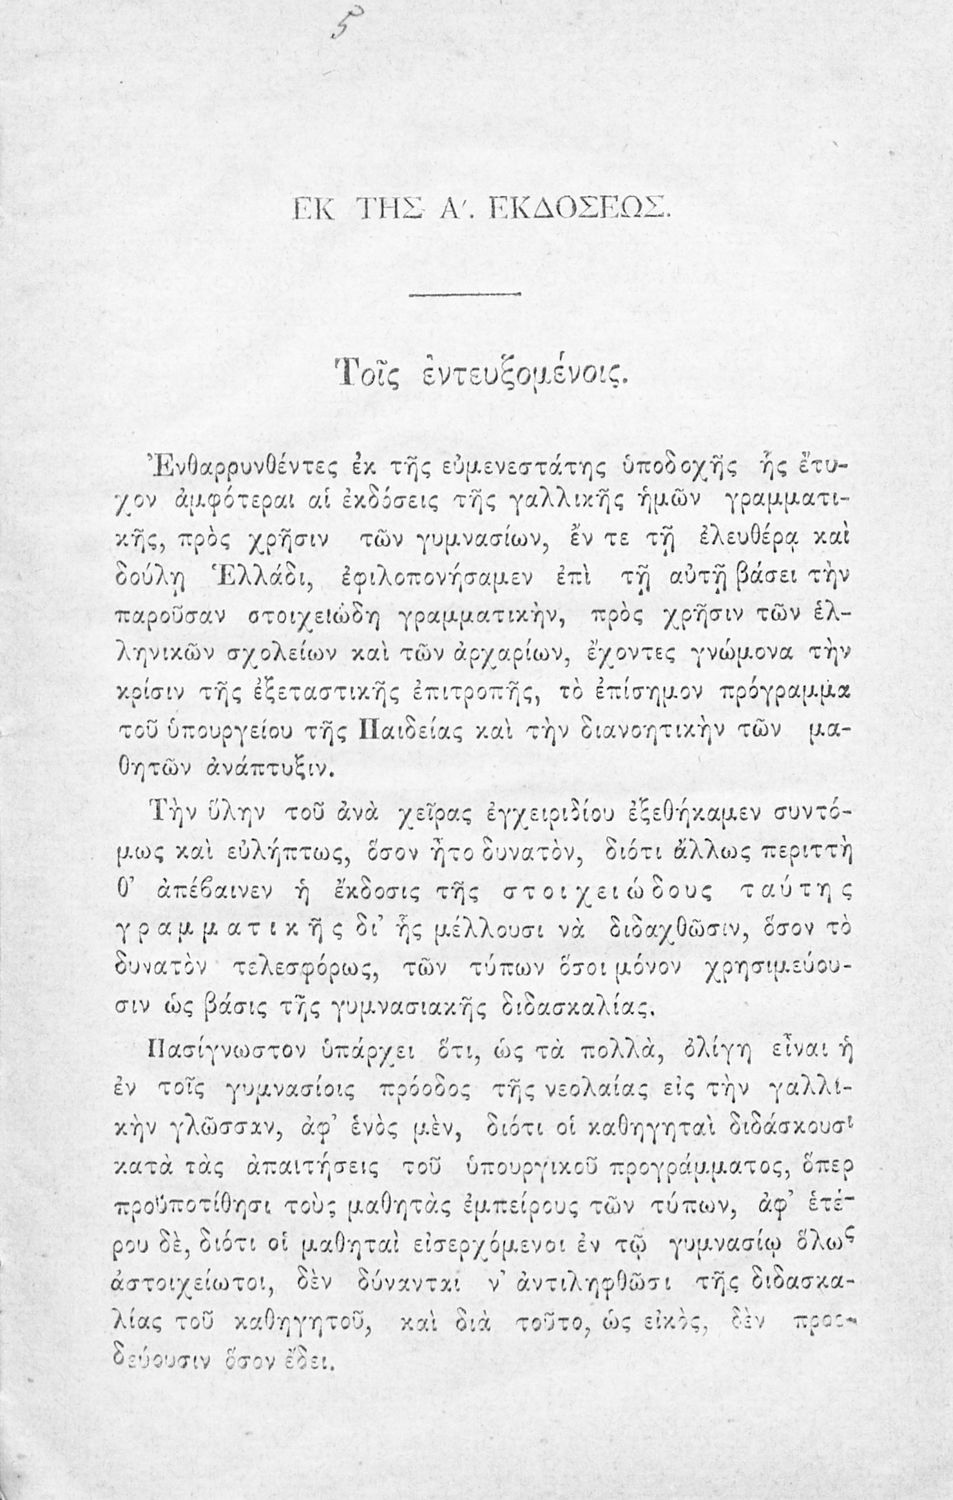 5
ΕΚ ΤΗΣ Α΄. ΕΚΔΟΣΕΩΣ.
Τοῖς ἐντευξομένοις.
Ἐνθαρρυνθέντες ἐκ τῆς εὐμενεστάτης ὑποδοχῆς ἧς ἔτυ-
χον ἀμφότεραι αἱ ἐκδόσεις τῆς γαλλικῆς ἡμῶν γραμματι-
κῆς, πρὸς χρῆσιν τῶν γυμνασίων, ἔν τε τῇ ἐλευθέρᾳ καὶ
δούλῃ Ἑλλάδι, ἐφιλοπονήσαμεν ἐπὶ τῇ αὐτῇ βάσει τὴν
παροῦσαν στοιχειώδη γραμματικὴν, πρὸς χρῆσιν τῶν ἑλ-
ληνικῶν σχολείων καὶ τῶν ἀρχαρίων, ἔχοντες γνώμονα τὴν
κρίσιν τῆς ἐξεταστικῆς ἐπιτροπῆς, τὸ ἐπίσημον πρόγραμμα
τοῦ ὑπουργείου τῆς Παιδείας καὶ τὴν διανοητικὴν τῶν μα-
θητῶν ἀνάπτυξιν.
Τὴν ὕλην τοῦ ἀνὰ χεῖρας ἐγχειριδίου ἐξεθήκαμεν συντό-
μως καὶ εὐλήπτως, ὅσον ἦτο δυνατὸν, διότι ἄλλως περιττὴ
θ’ ἀπέβαινεν ἡ ἔκδοσις τῆς στοιχειώδους ταύτης
γραμματικῆς δι’ ἧς μέλλουσι νὰ διδαχθῶσιν, ὅσον τὸ
δυνατὸν τελεσφόρως, τῶν τύπων ὅσοι μόνον χρησιμεύου-
σιν ὡς βάσις τῆς γυμνασιακῆς διδασκαλίας.
Πασίγνωστον ὑπάρχει ὅτι, ὡς τὰ πολλὰ, ὀλίγη εἶναι ἡ
ἐν τοῖς γυμνασίοις πρόοδος τῆς νεολαίας εἰς τὴν γαλλι-
κὴν γλῶσσαν, ἀφ’ ἑνὸς μὲν, διότι οἱ καθηγηταὶ διδάσκουσι
κατὰ τὰς ἀπαιτήσεις τοῦ ὑπουργικοῦ προγράμματος, ὅπερ
προϋποτίθησι τοὺς μαθητὰς ἐμπείρους τῶν τύπων, ἀφ’ ἑτέ-
ρου δὲ, διότι οἱ μαθηταὶ εἰσερχόμενοι ἐν τῷ γυμνασίῳ ὅλως
ἀστοιχείωτοι, δὲν δύνανται ν’ ἀντιληφθῶσι τῆς διδασκα-
λίας τοῦ καθηγητοῦ, καὶ διὰ τοῦτο, ὡς εἰκὸς, δὲν προο-
δεύουσιν ὅσον ἔδει.